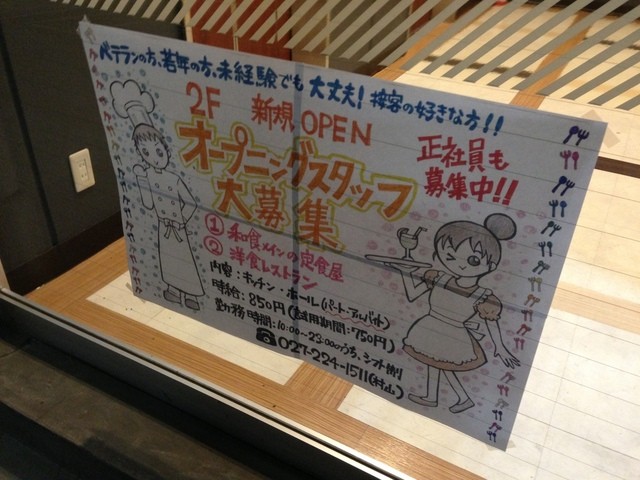 ベテランの方、若年の方、未経験でも大丈夫！接客の好きな方！！
2F 新規OPEN
オープニングスタッフ
大募集
正社員も
募集中!!
① 和食メインの定食屋
② 洋食レストラン
内容：キッチン・ホール(パート・アルバイト)
時給：850円(試用期間：750円)
勤務時間：10:00~23:00のうち、シフト制
☎027-224-1511(村山)